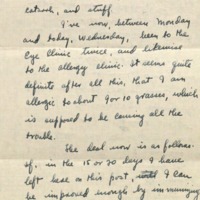 catarrh, and stuff.
I've now, between Monday
and today, Wednesday, been to the
Eye Clinic twice, and likewise
to the allergy clinic. It seems quite
definite after all this, that I am
allergic to about 9 or 10 grasses, which
is supposed to be causing all the
trouble.
The deal now is as follows
if, in the 15 or 20 days I have
left here on this post, until I can
be improved enough by immuniz